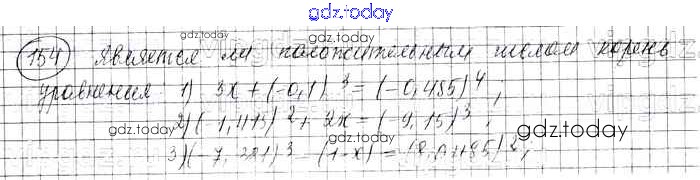 gdz.today
154) Является ли положительным числом корень
gdz.today
уравнения 1) 3x + (-0,1)^3 = (-0,485)^4;
2) (-1,415)^2 + 2x = (-9,15)^3;
gdz.today gdz.today gdz.today
3) (-7,381)^3 - (1-x) =